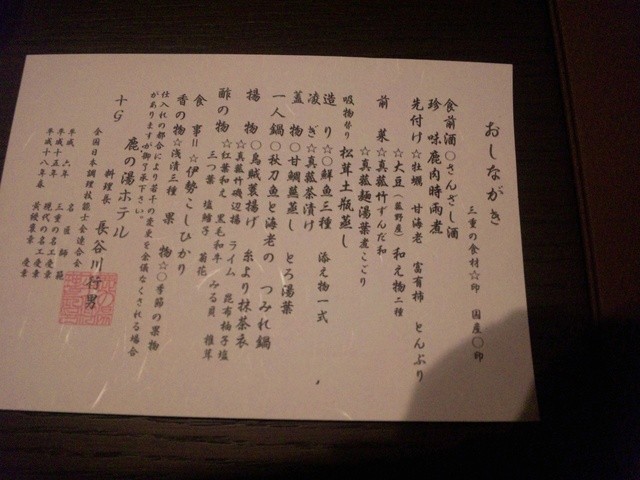 おしながき
三重の食材☆印 国産○印
食前酒○さんざし酒
珍 味鹿肉時雨煮
先付け☆牡蠣 甘海老 富有柿 とんぶり
☆大豆(菰野産)和え物二種
前 菜☆真菰竹ずんだ和
☆真菰麺湯葉煮こごり
吸物替り 松茸土瓶蒸し
造 り☆○鮮魚三種 添え物一式
凌 ぎ☆真菰茶漬け
蓋 物○甘鯛蕪蒸し とろ湯葉
一人鍋○秋刀魚と海老の つみれ鍋
揚 物○烏賊蓑揚げ 糸より抹茶衣
☆真菰竹磯辺揚 ライム 昆布柚子塩
酢の物☆紅葉和え 黒毛和牛 みる貝 椎茸
三つ葉 塩鱠子 菊花
食 事‖☆伊勢こしひかり
香の物☆浅漬三種 果 物☆○季節の果物
仕入れの都合により若干の変更を余儀なくされる場合
がありますが御了承下さい。
鹿の湯ホテル
料理長 長谷川 行男
全国日本調理技能士会連合会
平成 六年 名匠 師範
平成十五年 三重の名工受章
現代の名工受章
平成十八年春 黄綬褒章 受章